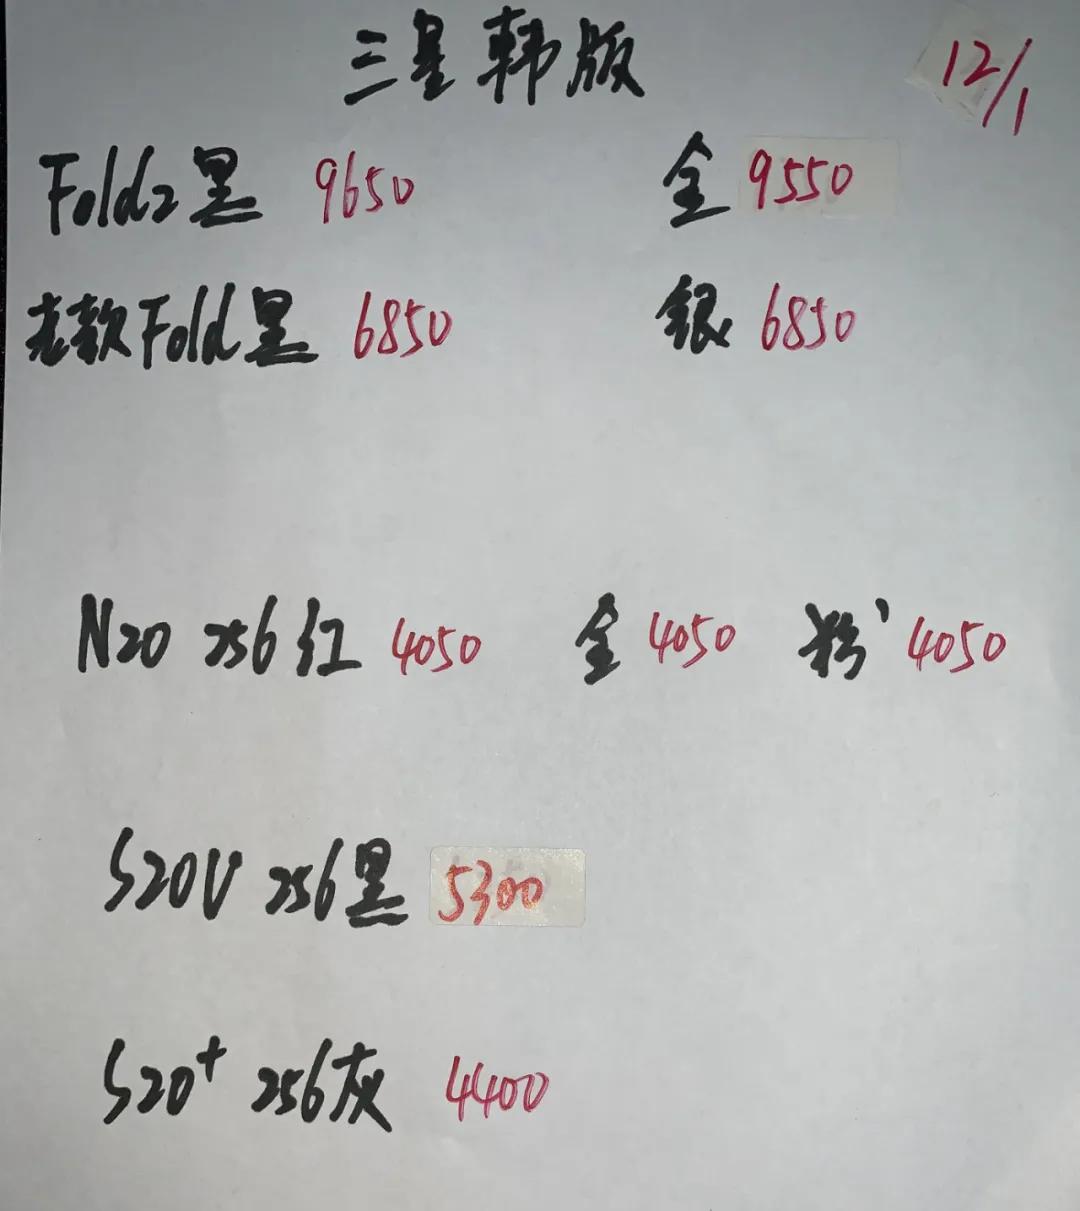 三星韩版 12/1
Fold2黑 9650 金 9550
老款Fold黑 6850 银 6850
N20 256红 4050 金 4050 粉 4050
S20U 256黑 5300
S20+ 256灰 4400